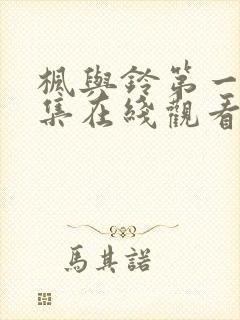 楓與鈴第一
集在綫觀看
馬其諾